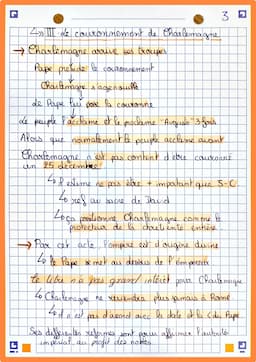 3
↳ III Le couronnement de Charlemagne
→ Charlemagne arrive ses troupes
Pape prélude le couronnement
Charlemagne s'agenouille
Le Pape lui pose la couronne
Le peuple l'acclame et le proclame "Auguste" 3 fois
Alors que normalement le peuple acclame avant
Charlemagne n'est pas content d'être couronné
un 25 décembre!
↳ Il estime ne pas être + important que J-C
↳ ref au sacre de David
↳ ça positionne Charlemagne comme le
protecteur de la chrétienté entière
→ Par cet acte l'empire est d'origine divine
↳ le Pape se met au dessus de l'empereur
Le titre n'a pas grand intérêt pour Charlemagne
↳ Charlemagne ne reviendra plus jamais à Rome
↳ il n'est pas d'accord avec la date et le du Pape
Ses différentes reformes sont pour affirmer l'autorité
impérial au profit des nobles